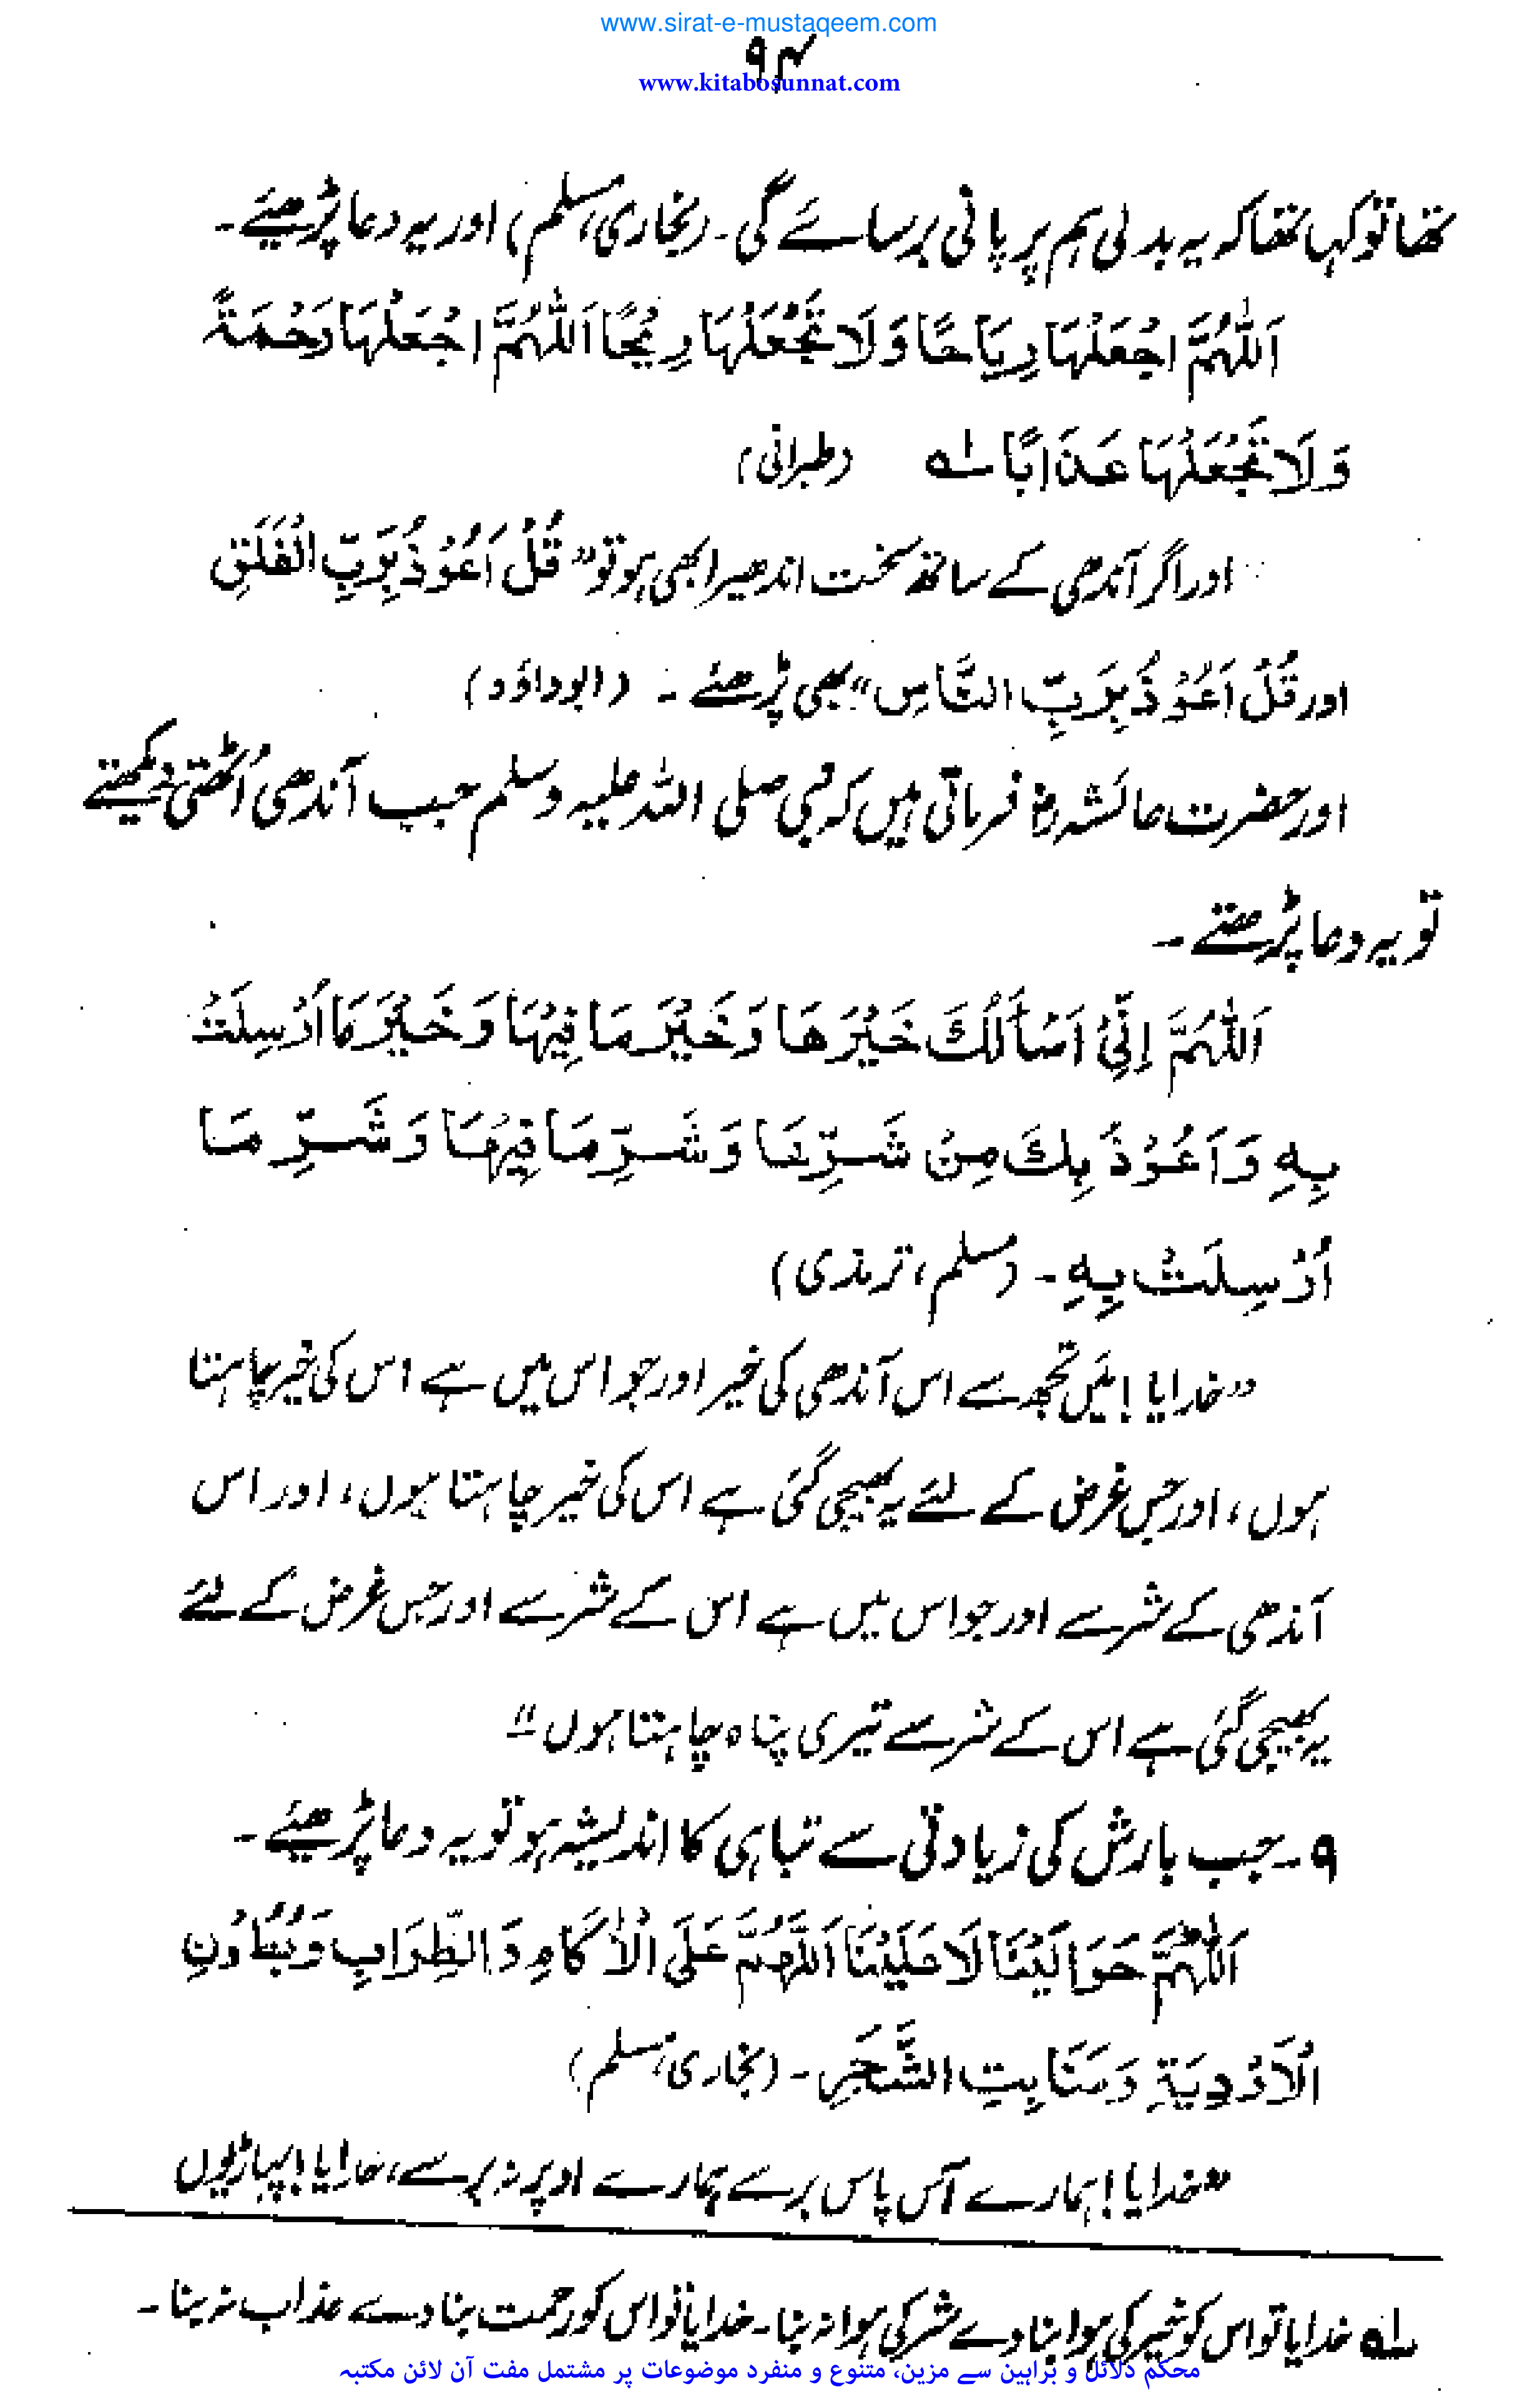 www.sirat-e-mustaqeem.com
۹۴
www.kitabosunnat.com
تھا تو کہا تھا کہ یہ بدلی ہم پر پانی برسائے گی۔ (بخاری، مسلم) اور یہ دعا پڑھیئے۔
اَللّٰهُمَّ اجْعَلْهَا رِيَاحًا وَّلَا تَجْعَلْهَا رِيْحًا اَللّٰهُمَّ اجْعَلْهَا رَحْمَةً
وَّلَا تَجْعَلْهَا عَذَابًا ؎۱ (طبرانی)
اور اگر آندھی کے ساتھ سخت اندھیرا بھی ہو تو "قُلْ اَعُوْذُ بِرَبِّ الْفَلَقِ
اور قُلْ اَعُوْذُ بِرَبِّ النَّاسِ" بھی پڑھئے ۔ (ابوداؤد)
اور حضرت عائشہ رضؓ فرماتی ہیں کہ نبی صلی اللہ علیہ وسلم جب آندھی اُٹھتی دیکھتے
تو یہ دعا پڑھتے ۔
اَللّٰهُمَّ اِنِّيْ اَسْأَلُكَ خَيْرَهَا وَخَيْرَ مَا فِيْهَا وَخَيْرَ مَا اُرْسِلَتْ
بِهٖ وَاَعُوْذُ بِكَ مِنْ شَرِّهَا وَشَرِّ مَا فِيْهَا وَشَرِّ مَا
اُرْسِلَتْ بِهٖ ۔ (مسلم، ترمذی)
"خدایا! میَں تجھ سے اس آندھی کی خیر اور جو اس میں ہے اس کی خیر چاہتا
ہوں، اور جس غرض کے لئے یہ بھیجی گئی ہے اس کی خیر چاہتا ہوں، اور اس
آندھی کے شر سے اور جو اس میں ہے اس کے شر سے اور جس غرض کے لئے
یہ بھیجی گئی ہے اس کے شر سے تیری پناہ چاہتا ہوں"
۹۔ جب بارش کی زیادتی سے تباہی کا اندیشہ ہو تو یہ دعا پڑھیئے ۔
اَللّٰهُمَّ حَوَالَيْنَا لَا عَلَيْنَا اَللّٰهُمَّ عَلَى الْاٰكَامِ وَالظِّرَابِ وَبُطُوْنِ
الْاَوْدِيَةِ وَمَنَابِتِ الشَّجَرِ ۔ (بخاری، مسلم)
"خدایا! ہمارے آس پاس برسے ہمارے اوپر نہ برسے، خدایا! پہاڑیوں
؎۱ خدایا تو اس کو خیر کی ہوا بنا دے شر کی ہوا نہ بنا۔ خدایا تو اس کو رحمت بنا دے عذاب نہ بنا۔
محکم دلائل و براہین سے مزین، متنوع و منفرد موضوعات پر مشتمل مفت آن لائن مکتبہ